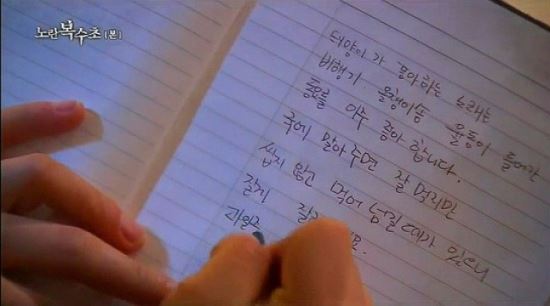 노란복수초 [본]
태양이가 좋아하는 노래는
비행기 올챙이송 율동이 들어간
동요를 아주 좋아 합니다.
국에 말아주면 잘 먹지만
씹지 않고 먹어 넘길 때가 있으니
잘게
과일은